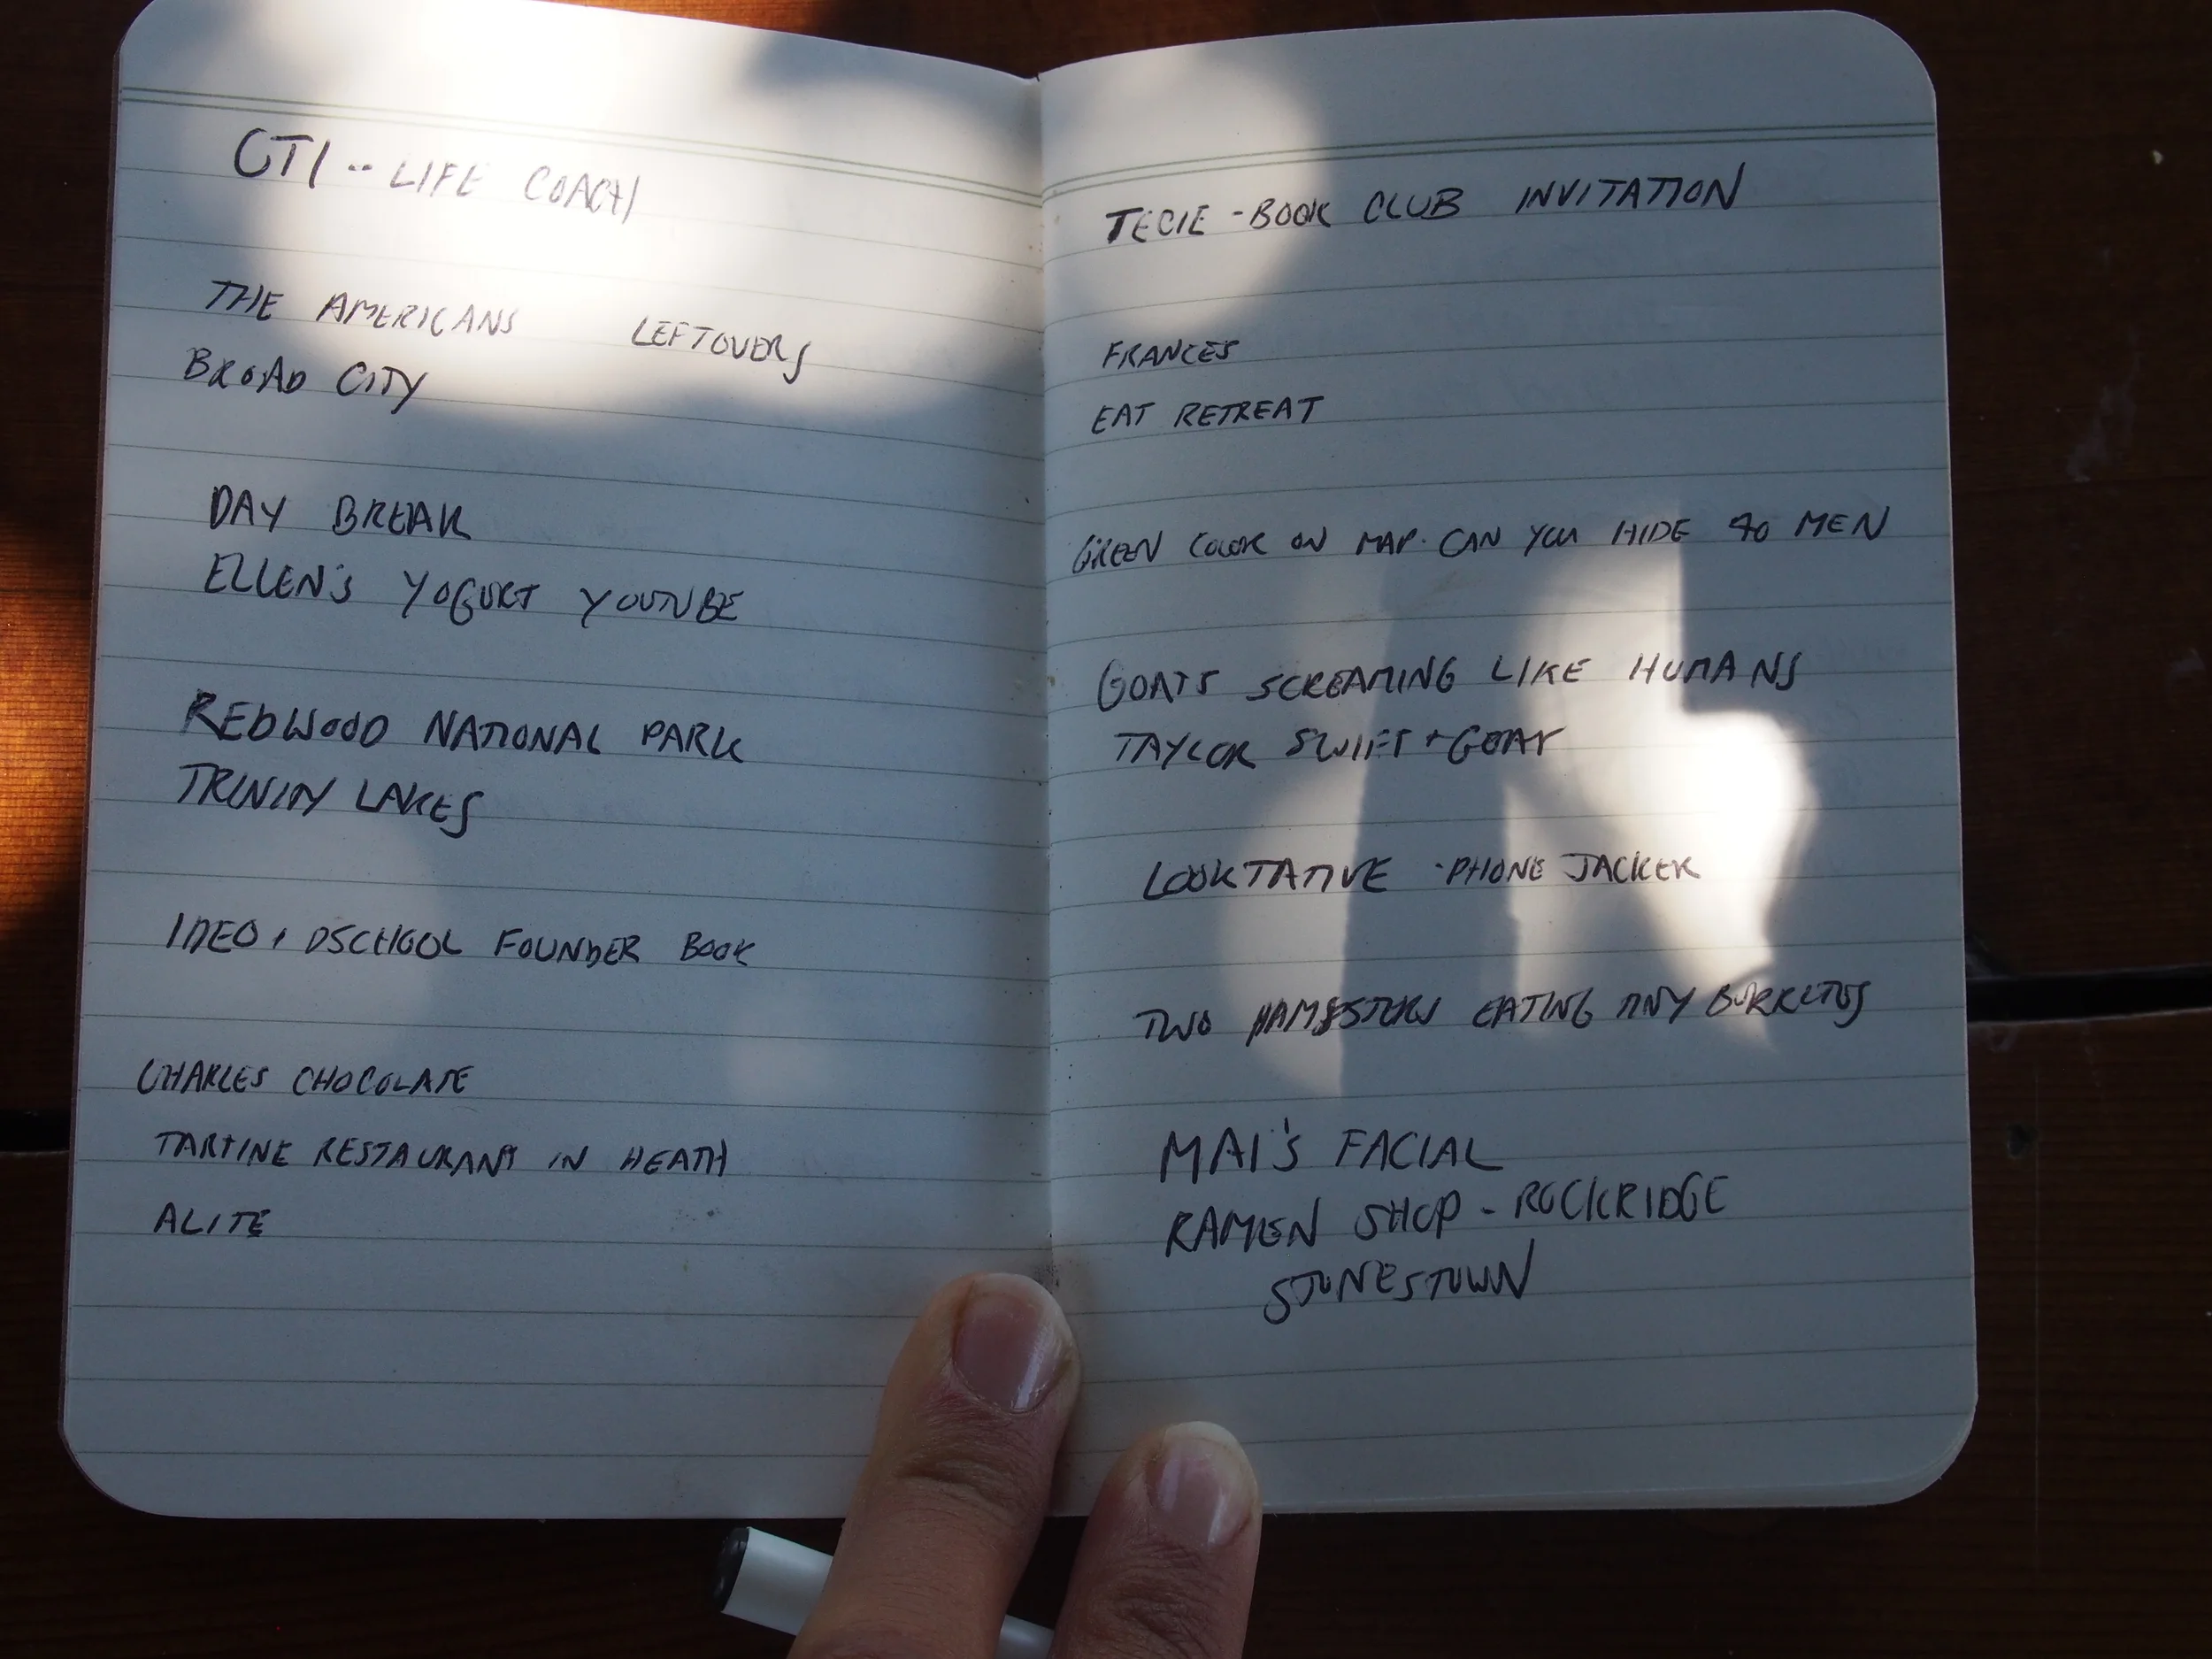 CTI -- LIFE COACH
THE AMERICANS LEFTOVERS
BROAD CITY
DAY BREAK
ELLEN'S YOGURT YOUTUBE
REDWOOD NATIONAL PARK
TRINITY LAKES
IDEO + DSCHOOL FOUNDER BOOK
CHARLES CHOCOLATE
TARTINE RESTAURANT IN HEATH
ALITE
TECIE - BOOK CLUB INVITATION
FRANCES
EAT RETREAT
GREEN COLOR ON MAP. CAN YOU HIDE 40 MEN
GOATS SCREAMING LIKE HUMANS
TAYLOR SWIFT + GOAT
LOOKTATIVE - PHONE JACKER
TWO HAMSTERS EATING TINY BURRITOS
MAI'S FACIAL
RAMEN SHOP - ROCKRIDGE
STONESTOWN